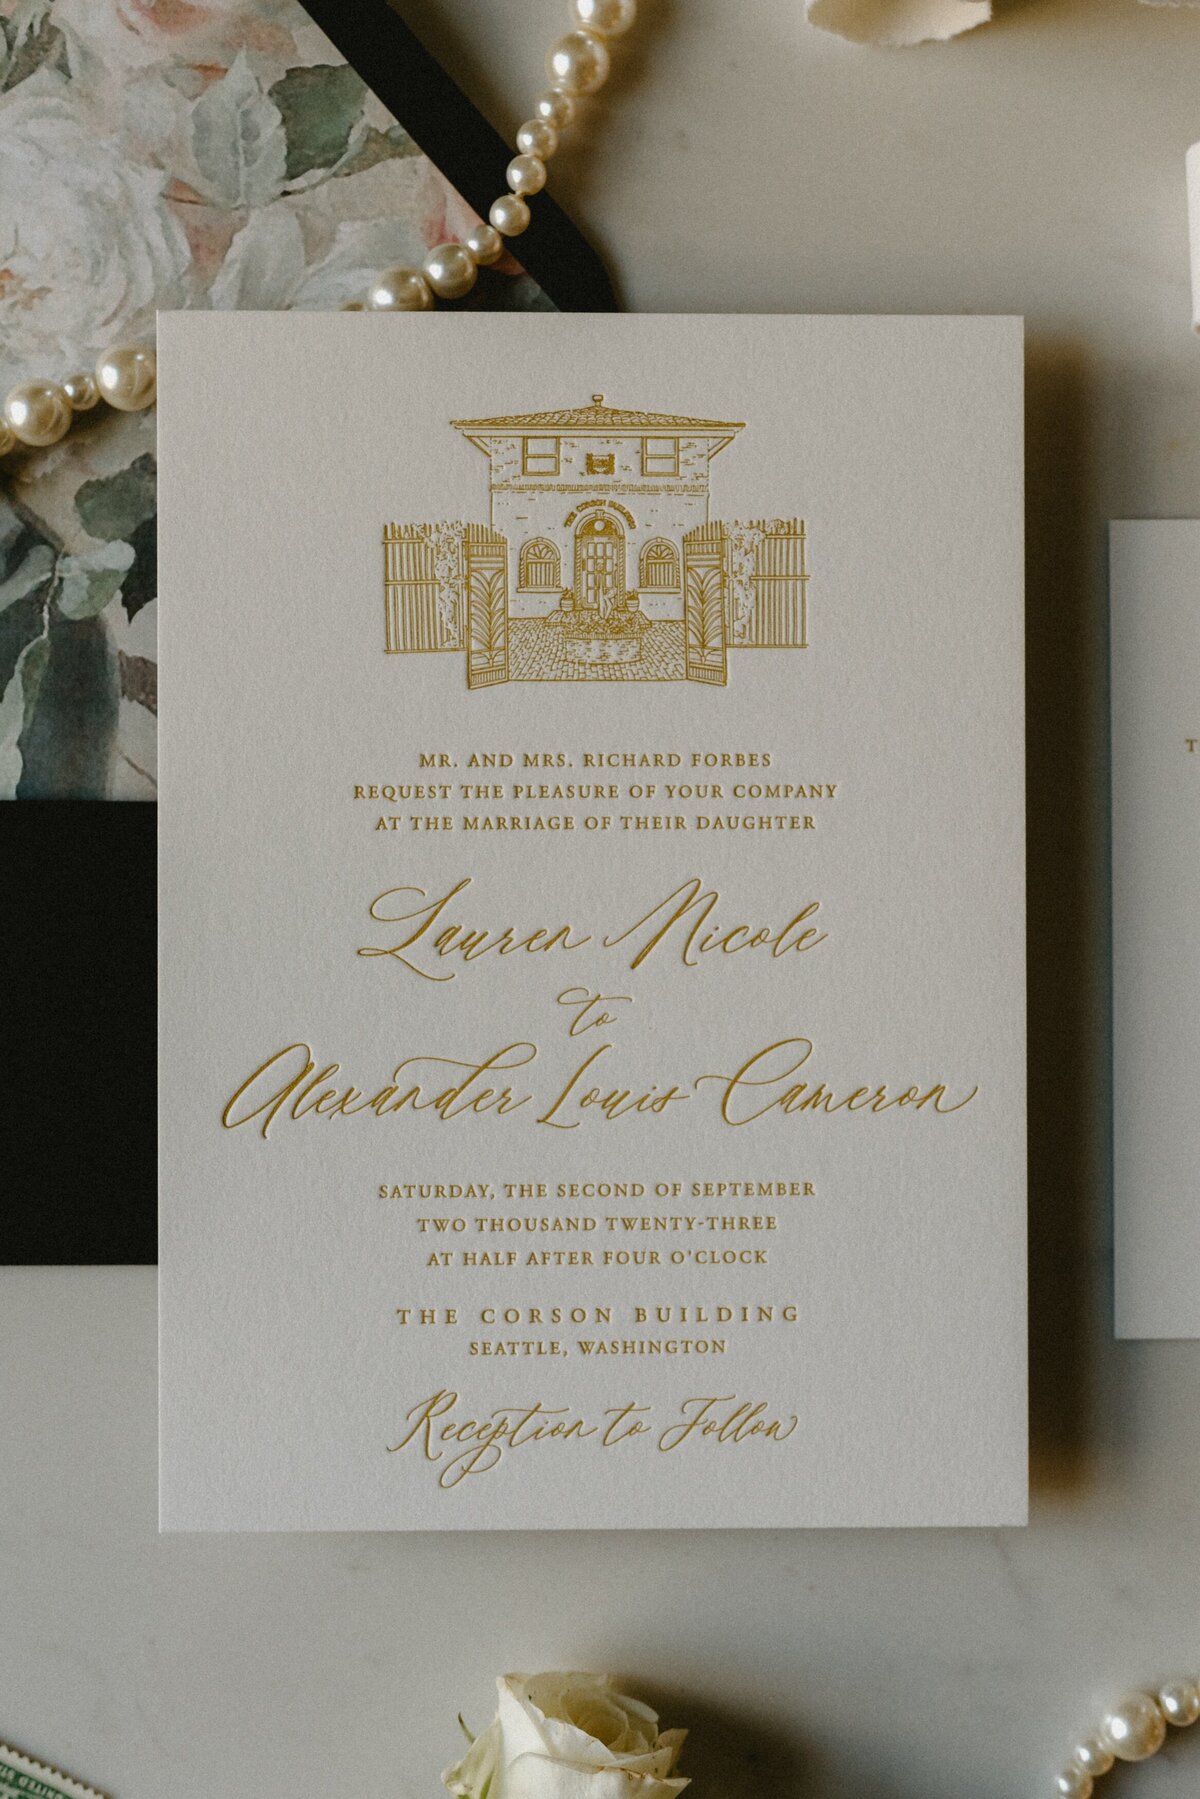 THE CORSON BUILDING
MR. AND MRS. RICHARD FORBES
REQUEST THE PLEASURE OF YOUR COMPANY
AT THE MARRIAGE OF THEIR DAUGHTER
Lauren Nicole
to
Alexander Louis Cameron
SATURDAY, THE SECOND OF SEPTEMBER
TWO THOUSAND TWENTY-THREE
AT HALF AFTER FOUR O'CLOCK
THE CORSON BUILDING
SEATTLE, WASHINGTON
Reception to Follow
T
UNITED